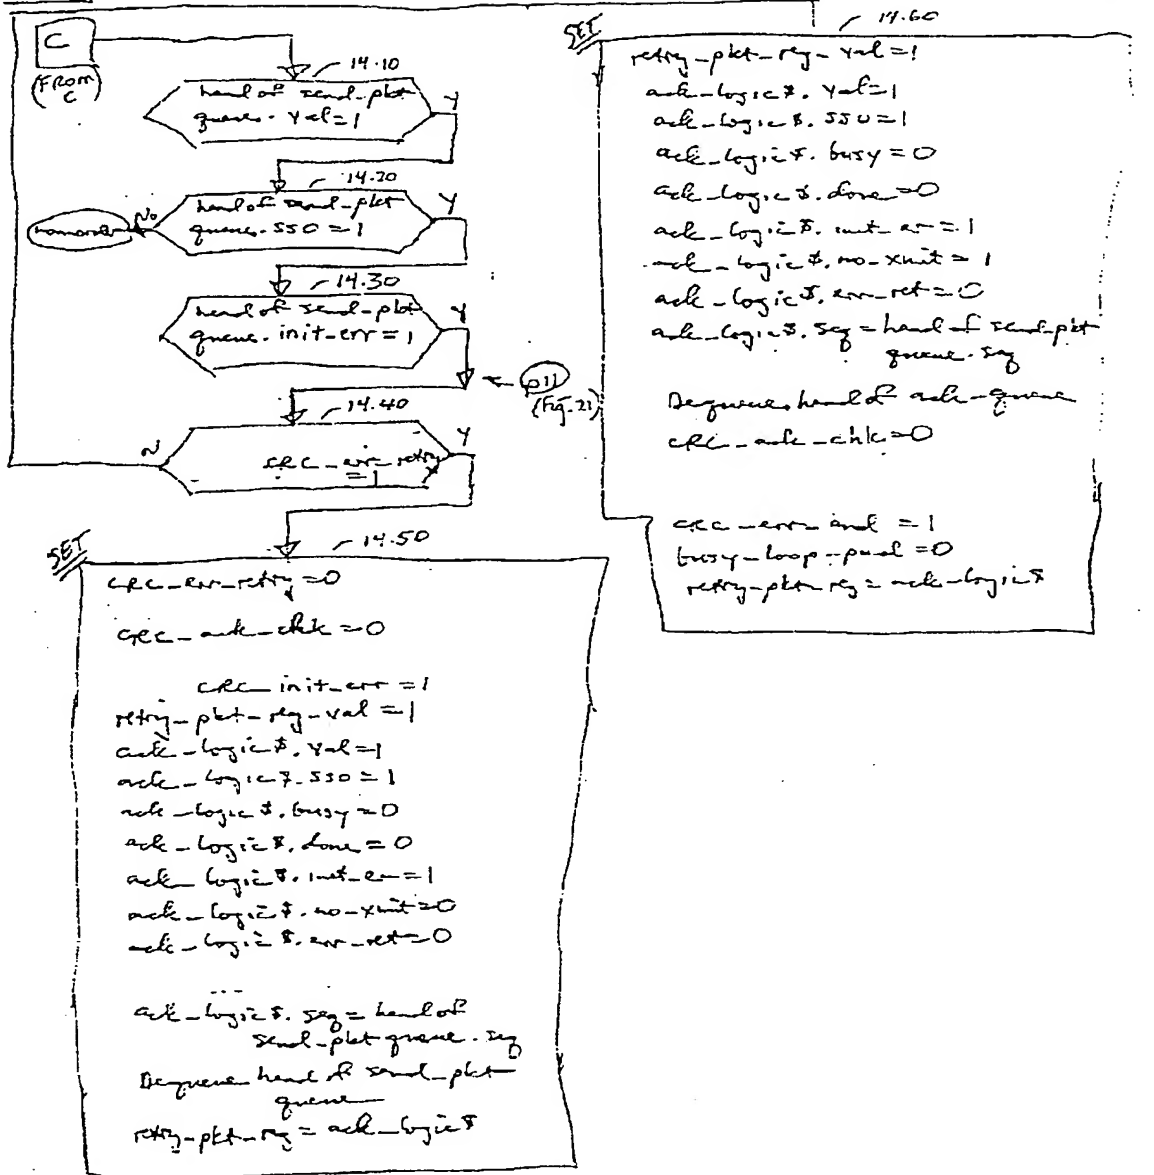 C
(FROM
C)
14.10
head of send-pkt
queue. val=1
Y
14.20
head of send-pkt
queue. SSO = 1
Y
No
14.30
head of send-pkt
queue. init-err = 1
Y
p11
(Fig-21)
14.40
N
CRC_err_retry
=1
Y
SET
14.50
CRC_err_retry=0
CRC_ack_chk=0
CRC_init_err=1
retry-pkt-reg-val=1
ack-logic$. val=1
ack-logic$. SSO=1
ack-logic$. busy=0
ack-logic$. done=0
ack_logic$. init_err=1
ack-logic$. no-xmit=0
ack-logic$. err_ret=0
...
ack-logic$. seq = head of
send-pkt queue. seq
Dequeue head of send_pkt
queue
retry-pkt-reg = ack-logic$
SET
14.60
retry-pkt-reg-val=1
ack-logic$. val=1
ack-logic$. SSO=1
ack-logic$. busy=0
ack-logic$. done=0
ack_logic$. init_err=1
ack-logic$. no-xmit=1
ack-logic$. err_ret=0
ack-logic$. seq = head of send-pkt
queue. seq
Dequeue head of ack-queue
CRC_ack_chk=0
CRC_err_ind = 1
busy-loop-pud=0
retry-pkt-reg = ack-logic$